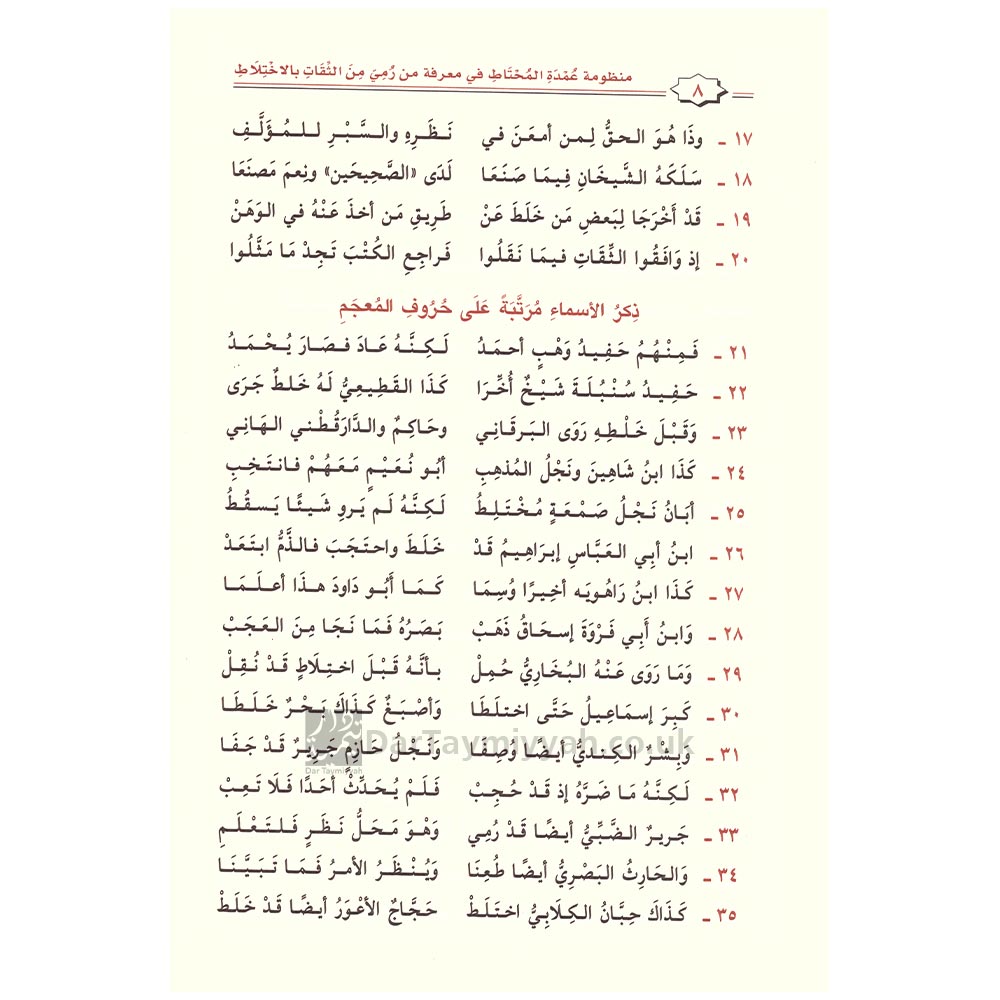 منظومة عُمْدَةِ المُحْتَاطِ في معرفة من رُمِيَ مِنَ الثِّقَاتِ بالاخْتِلَاطِ
٨
١٧ ـ وذَا هُوَ الحقُّ لِمن أمعَنَ في نَظَرِهِ والسَّبْرِ للمُؤَلَّفِ
١٨ ـ سَلَكَهُ الشَّيخَانِ فِيمَا صَنَعَا لَدَى «الصَّحِيحَين» ونِعمَ مَصنَعَا
١٩ ـ قَدْ أَخْرَجَا لِبَعضِ مَن خَلَطَ عَنْ طَرِيقِ مَن أخذَ عَنْهُ في الوَهَنْ
٢٠ ـ إذ وَافَقُوا الثِّقَاتِ فيمَا نَقَلُوا فَراجِعِ الكُتْبَ تَجِدْ مَا مَثَّلُوا
ذِكرُ الأسماءِ مُرَتَّبَةً عَلَى حُرُوفِ المُعجَمِ
٢١ ـ فَمِنْهُمُ حَفِيدُ وَهْبٍ أحمَدُ لَكِنَّهُ عَادَ فصَارَ يُحْمَدُ
٢٢ ـ حَفِيدُ سُنْبُلَةَ شَيْخٌ أُخِّرَا كَذَا القَطِيعِيُّ لَهُ خَلطٌ جَرَى
٢٣ ـ وَقَبْلَ خَلْطِهِ رَوَى البَرقَانِي وحَاكِمٌ والدَّارَقُطْني الهَانِي
٢٤ ـ كَذَا ابنُ شَاهِينَ ونَجْلُ المُذهِبِ أبُو نُعَيْمٍ مَعَهُمْ فانتَخِبِ
٢٥ ـ أبَانُ نَجْلُ صَمْعَةٍ مُخْتَلِطُ لَكِنَّهُ لَم يَروِ شَيئًا يَسقُطُ
٢٦ ـ ابنُ أبِي العَبَّاسِ إبرَاهِيمُ قَدْ خَلَطَ واحتَجَبَ فالذَّمُّ ابتَعَدْ
٢٧ ـ كَذَا ابنُ رَاهُويَه أخِيرًا وُسِمَا كَمَا أَبُو دَاودَ هذَا أعلَمَا
٢٨ ـ وَابنُ أَبِي فَرْوَةَ إسحَاقُ ذَهَبْ بَصَرُهُ فَمَا نَجَا مِنَ العَجَبْ
٢٩ ـ وَمَا رَوَى عَنْهُ البُخَارِيُّ حُمِلْ بأنَّهُ قَبْلَ اختِلَاطٍ قَدْ نُقِلْ
٣٠ ـ كَبِرَ إسمَاعِيلُ حَتَّى اختلَطَا وَأصْبَغٌ كَذَاكَ بَحْرٌ خَلَطَا
٣١ ـ وَبِشْرٌ الكِنديُّ أيضًا وُصِفَا وَنَجْلُ حَازِمٍ جَرِيرٌ قَدْ جَفَا
DarTaymiyyah.co.uk
Dar Taymiyyah
٣٢ ـ لَكِنَّهُ مَا ضَرَّهُ إذ قَدْ حُجِبْ فَلَمْ يُحَدِّثْ أحَدًا فَلَا تَعِبْ
٣٣ ـ جَريرٌ الضَّبِّيُّ أيضًا قَدْ رُمِي وَهْوَ مَحَلُّ نَظَرٍ فَلتَعْلَمِ
٣٤ ـ وَالحَارِثُ البَصْرِيُّ أيضًا طُعِنَا وَيُنْظَرُ الأمرُ فَمَا تَبَيَّنَا
٣٥ ـ كَذَاكَ حِبَّانُ الكِلَابِيُّ اختَلَطْ حَجَّاجٌ الأعْوَرُ أيضًا قَدْ خَلَطْ